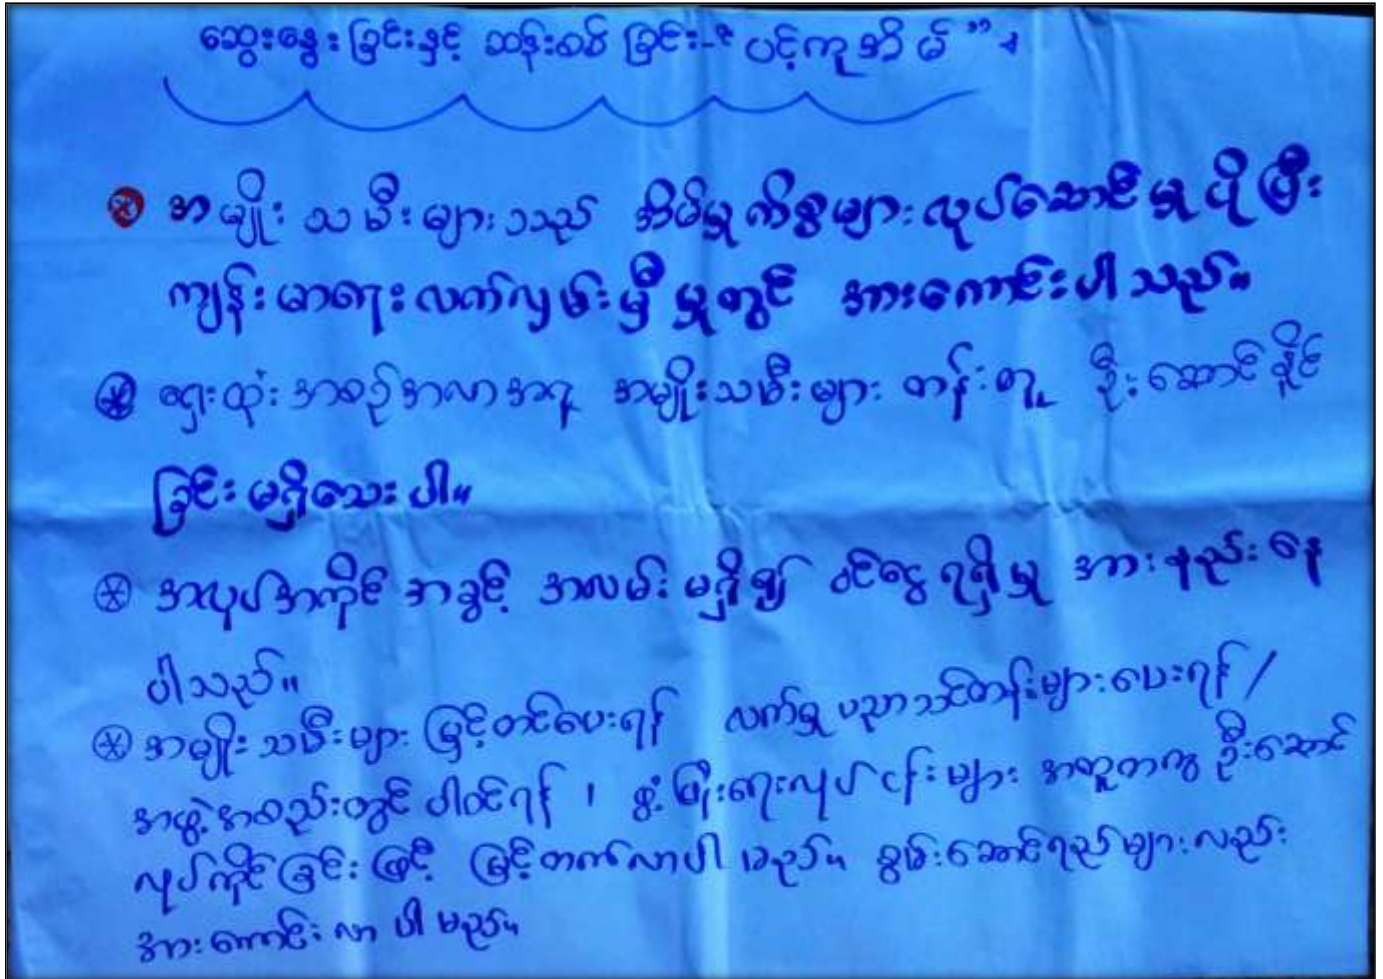 ဆွေးနွေးခြင်းနှင့် ဆန်းစစ်ခြင်း- "ပင့်ကူအိမ်"၊
အမျိုးသမီးများသည် အိမ်မှုကိစ္စများလုပ်ဆောင်မှုပိုပြီး
ကျန်းမာရေးလက်လှမ်းမှီမှုတွင် အားကောင်းပါသည်။
ရှေးထုံးအစဉ်အလာအရ အမျိုးသမီးများ တန်းတူ ဦးဆောင်နိုင်
ခြင်းမရှိသေးပါ။
အလုပ်အကိုင်အခွင့် အလမ်းမရှိ၍ ဝင်ငွေရရှိမှု အားနည်းနေ
ပါသည်။
အမျိုးသမီးများ မြှင့်တင်ပေးရန် လက်မှုပညာသင်တန်းများပေးရန် /
အဖွဲ့အစည်းတွင် ပါဝင်ရန် ၊ ဖွံ့ဖြိုးရေးလုပ်ငန်းများ အတူတကွ ဦးဆောင်
လုပ်ကိုင်ခြင်းဖြင့် မြင့်တက်လာပါမည်။ စွမ်းဆောင်ရည်များလည်း
အားကောင်းလာပါမည်။